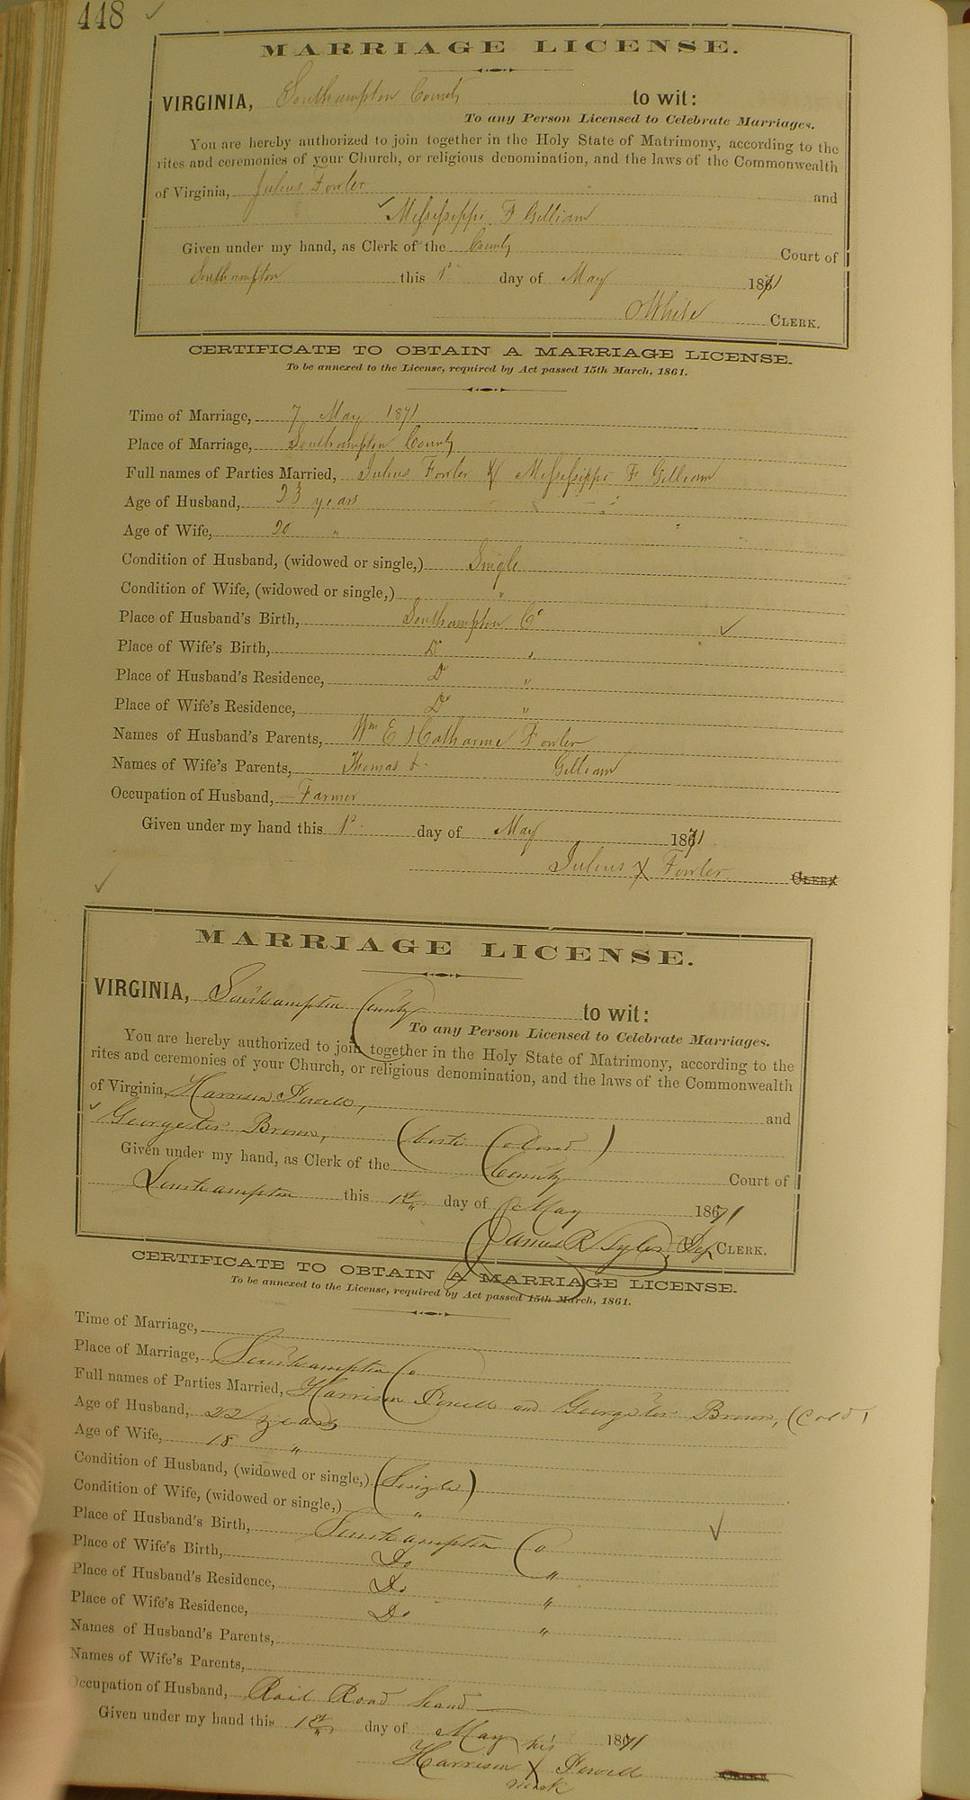 448
MARRIAGE LICENSE.
VIRGINIA, Southampton County to wit:
To any Person Licensed to Celebrate Marriages.
You are hereby authorized to join together in the Holy State of Matrimony, according to the
rites and ceremonies of your Church, or religious denomination, and the laws of the Commonwealth
of Virginia, Julius Fowler and
Mississippi F Gilliam
Given under my hand, as Clerk of the County Court of
Southampton this 1st day of May 1871
White CLERK.
CERTIFICATE TO OBTAIN A MARRIAGE LICENSE.
To be annexed to the License, required by Act passed 15th March, 1861.
Time of Marriage, 7 May 1871
Place of Marriage, Southampton County
Full names of Parties Married, Julius Fowler & Mississippi F Gilliam
Age of Husband, 23 years
Age of Wife, 20 "
Condition of Husband, (widowed or single,) Single
Condition of Wife, (widowed or single,) "
Place of Husband's Birth, Southampton Co
Place of Wife's Birth, Do "
Place of Husband's Residence, Do "
Place of Wife's Residence, Do "
Names of Husband's Parents, Wm E & Catharine Fowler
Names of Wife's Parents, Thomas & Gilliam
Occupation of Husband, Farmer
Given under my hand this 1st day of May 1871
Julius X Fowler CLERK
MARRIAGE LICENSE.
VIRGINIA, Southampton County to wit:
To any Person Licensed to Celebrate Marriages.
You are hereby authorized to join together in the Holy State of Matrimony, according to the
rites and ceremonies of your Church, or religious denomination, and the laws of the Commonwealth
of Virginia, Harrison and
Brown, (both Colored)
Given under my hand, as Clerk of the County Court of
Southampton this 1st day of May 1871
James R Tyler, Dep CLERK.
CERTIFICATE TO OBTAIN A MARRIAGE LICENSE.
To be annexed to the License, required by Act passed 15th March, 1861.
Time of Marriage,
Place of Marriage, Southampton Co
Full names of Parties Married, Harrison and Brown, (Cold)
Age of Husband, 22 years
Age of Wife, 18 "
Condition of Husband, (widowed or single,) (Single)
Condition of Wife, (widowed or single,) "
Place of Husband's Birth, Southampton Co
Place of Wife's Birth, Do "
Place of Husband's Residence, Do "
Place of Wife's Residence, Do "
Names of Husband's Parents,
Names of Wife's Parents,
Occupation of Husband, Rail Road hand
Given under my hand this 1st day of May 1871
his
Harrison X CLERK
mark